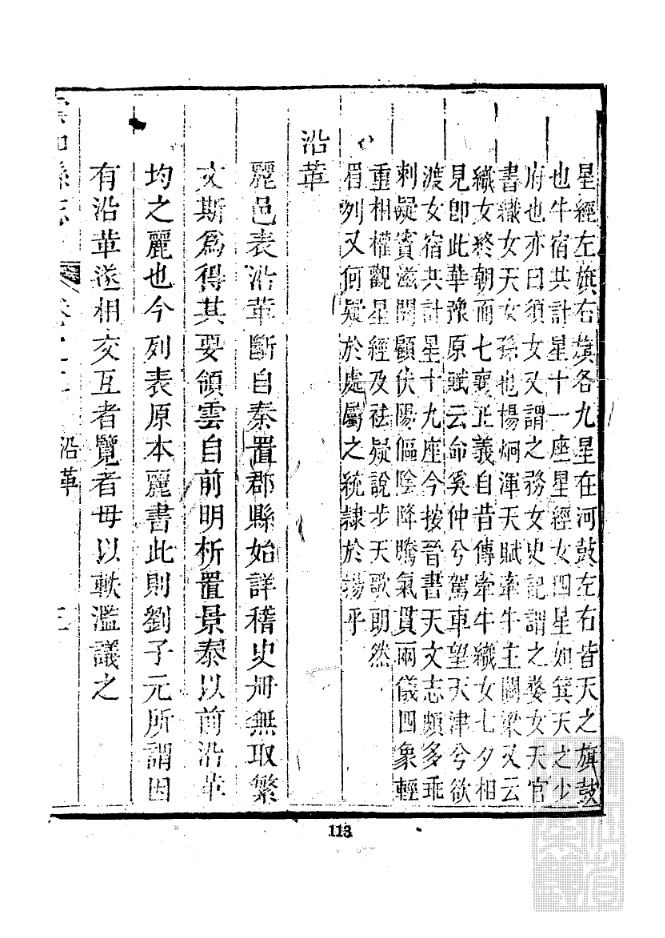 星經左旗右旗各九星在河鼓左右皆天之旗鼓
也牛宿共計星十一座星經女四星如箕天之少
府也亦曰須女又謂之務女史記謂之婺女天官
書織女天女孫也楊炯渾天賦牽牛主關梁又云
織女終朝而七襄正義自昔傳牽牛織女七夕相
見卽此華豫原賦云命奚仲兮駕車望天津兮欲
渡女宿共計星十九座今按晉書天文志頗多乖
刺疑賓滋闕顧伏陽傴陰降騰氣貫兩儀四象輕
重相權觀星經及祛疑說步天歌朗然
眉列又何疑於處屬之統隸於揚乎
沿革
麗邑表沿革斷自秦置郡縣始詳稽史册無取繁
文斯爲得其要領雲自前明析置景泰以前沿革
均之麗也今列表原本麗書此則劉子元所謂因
有沿革遂相交互者覽者毋以軼濫議之
縣志
沿革
113